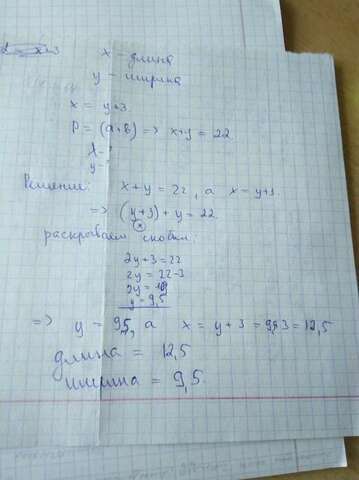 x - длина
y - ширина
x = y+3
P = (a+b) => x+y = 22
x - ?
y - ?
Решение: x+y = 22, а x = y+3
=> (y+3) + y = 22
(x)
раскрываем скобки
2y+3=22
2y = 22-3
2y = 19
y = 9,5
=> y = 9,5, а x = y+3 = 9,5+3 = 12,5
длина = 12,5
ширина = 9,5